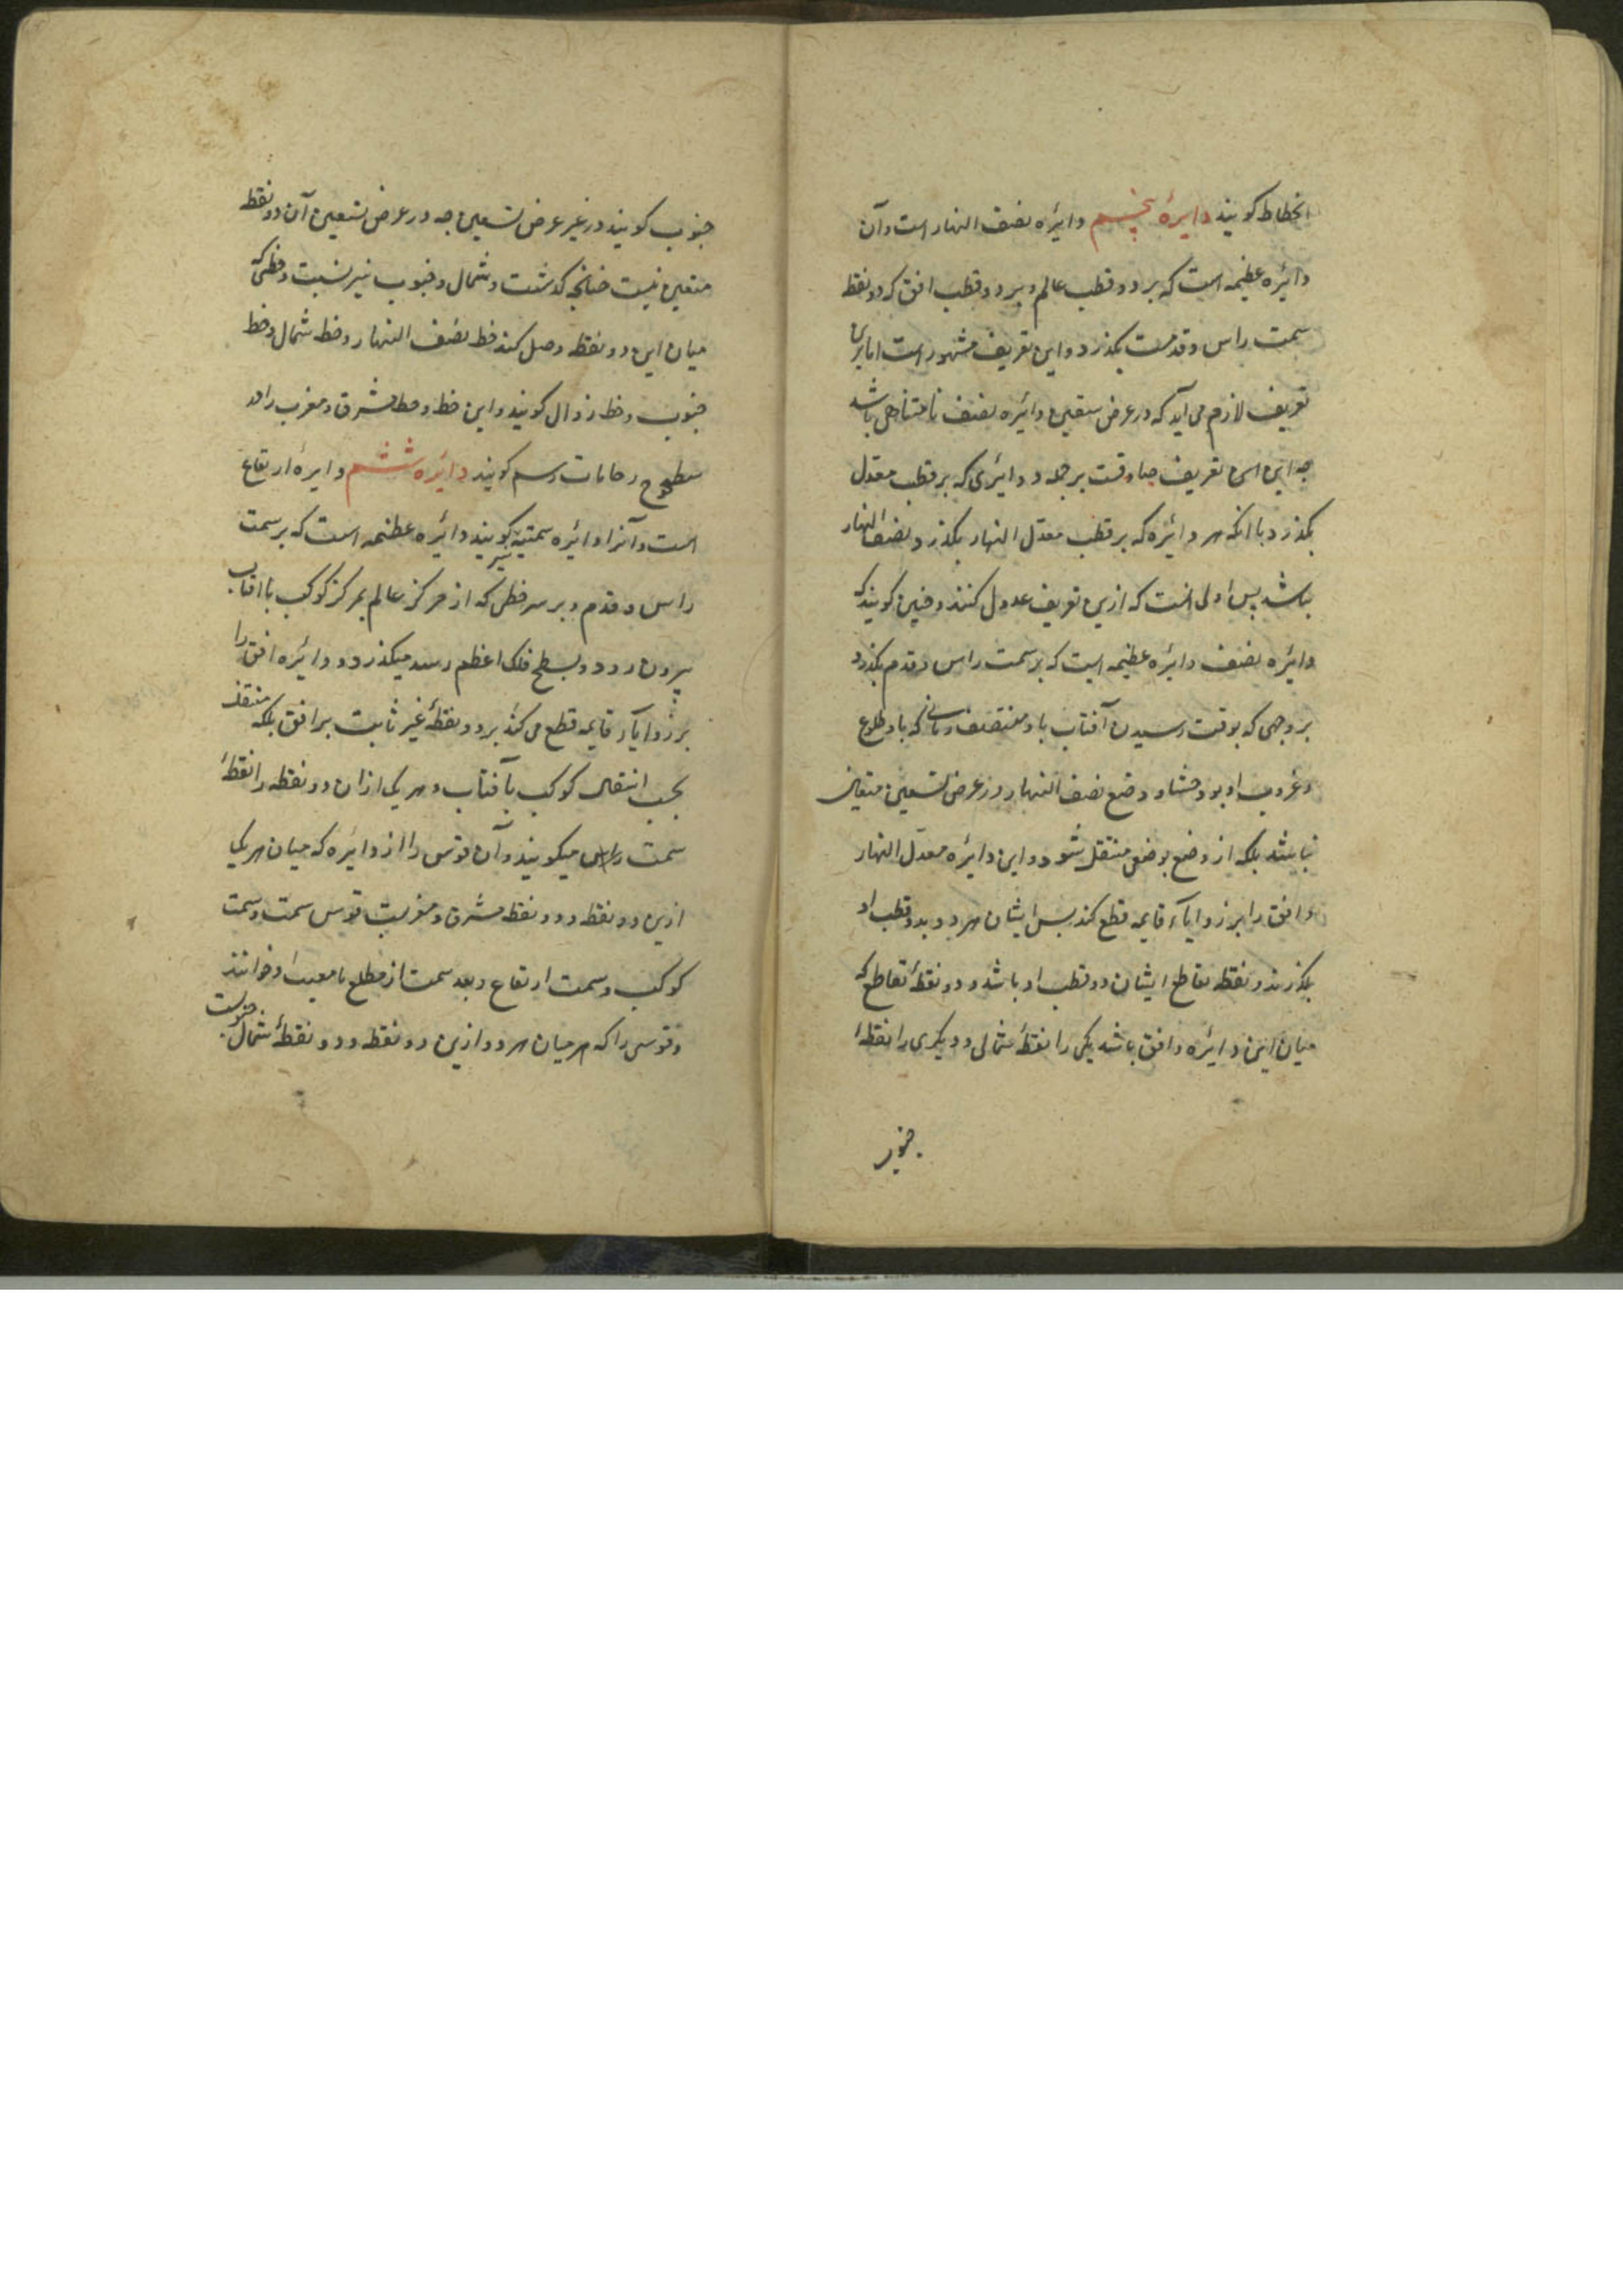 انحطاط کویند دایرهٔ پنجم دائره نصف النهار است وآن
دائره عظیمه است که بر دو قطب عالم و بر دو قطب افق که دو نقط
سمت راس و قدمست بکذرد واین تعریف مشهور است اما برین
تعریف لازم می آید که در عرض تسعین دائره نصف نامتناهی باشد
چه این تعریف صادقست بر جمله دوائری که بر قطب معدل
بکذرد با انکه هر دائره که بر قطب معدل النهار بکذرد نصف النهار
نباشد پس اولی انست که ازین تعریف عدول کنند وچنین کویند که
دائره نصف دائره عظیمه است که بر سمت راس و قدم بکذرد
بر وجهی که بوقت رسیدن آفتاب باو منتصف زمانی که باو طلوع
وغروب او بود وضع نصف النهار در عرض تسعین متعین
نباشد بلکه از وضع بوضعی منتقل شود واین دائره معدل النهار
وافق را بر زوایاء قایمه قطع کند پس ایشان هر دو بدو قطب او
بکذرند و نقطه تقاطع ایشان دو قطب او باشد و دو نقطهٔ تقاطع که
میان این دائره وافق باشد یکی را نقطهٔ شمالی و دیکری را نقطهٔ
جنوب
جنوب کویند در غیر عرض تسعین چه در عرض تسعین آن دو نقط
متعین نیست چنانچه کذشت و شمال و جنوب نیز نیست و خطی که
میان این دو نقطه وصل کند خط نصف النهار و خط شمال و خط
جنوب و خط زوال کویند واین خط و خط مشرق و مغرب را در
سطوح رخامات رسم کویند دائره ششم دایرهٔ ارتفاع
است وآنرا دائره سمتیه نیز کویند دائره عظیمه است که بر سمت
راس و قدم و بر سر خطی که از مرکز عالم بمرکز کوکب یا افتاب
بیرون رود و بسطح فلک اعظم رسد میکذرد و دائره افق را
بر زوایاء قایمه قطع می کند بر دو نقطهٔ غیر ثابت بر افق بلکه منتقل
بحسب انتقال کوکب یا آفتاب و هر یکی ازان دو نقطه را نقطهٔ
سمت میکویند وآن قوس را از دائره که میان هر یکی
ازین دو نقطه و دو نقطه مشرق و مغربست قوس سمت و سمت
کوکب و سمت ارتفاع و بعد سمت از مطلع یا مغیب او خوانند
وقوسی را که هر میان هر دو ازین دو نقطه و دو نقطهٔ شمال و جنوبست